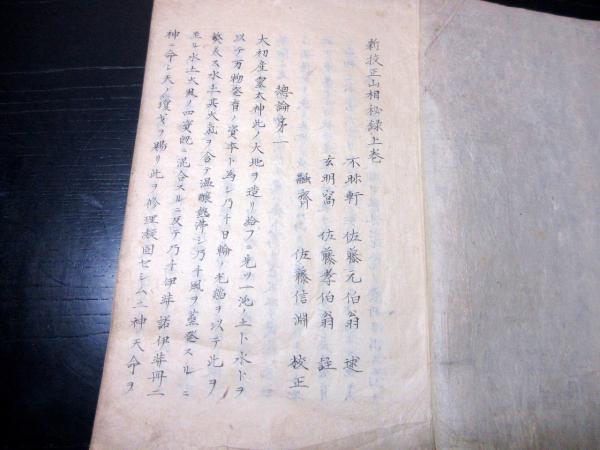 新校正山相秘録上巻
不昧軒 佐藤元伯翁 述
玄明窩 佐藤孝伯翁 註
融齋 佐藤信淵 校正
總論第一
大初産靈大神此ノ大地ヲ造リ給フニ先ツ一沌ノ土ト水トヲ
以テ万物発育ノ資本ト為シ乃チ日輪ノ光温ヲ以テ此ヲ
養ス水土其火氣ヲ含テ温醸熱沸シ乃チ風ヲ蒸発スルニ
至ル水土火風ノ四資既ニ混合スルニ及テ乃チ伊弉諾伊弉冊二
神ニ命シ天ノ瓊戈ヲ賜リ此ヲ修理凝固セシム二神天命ヲ